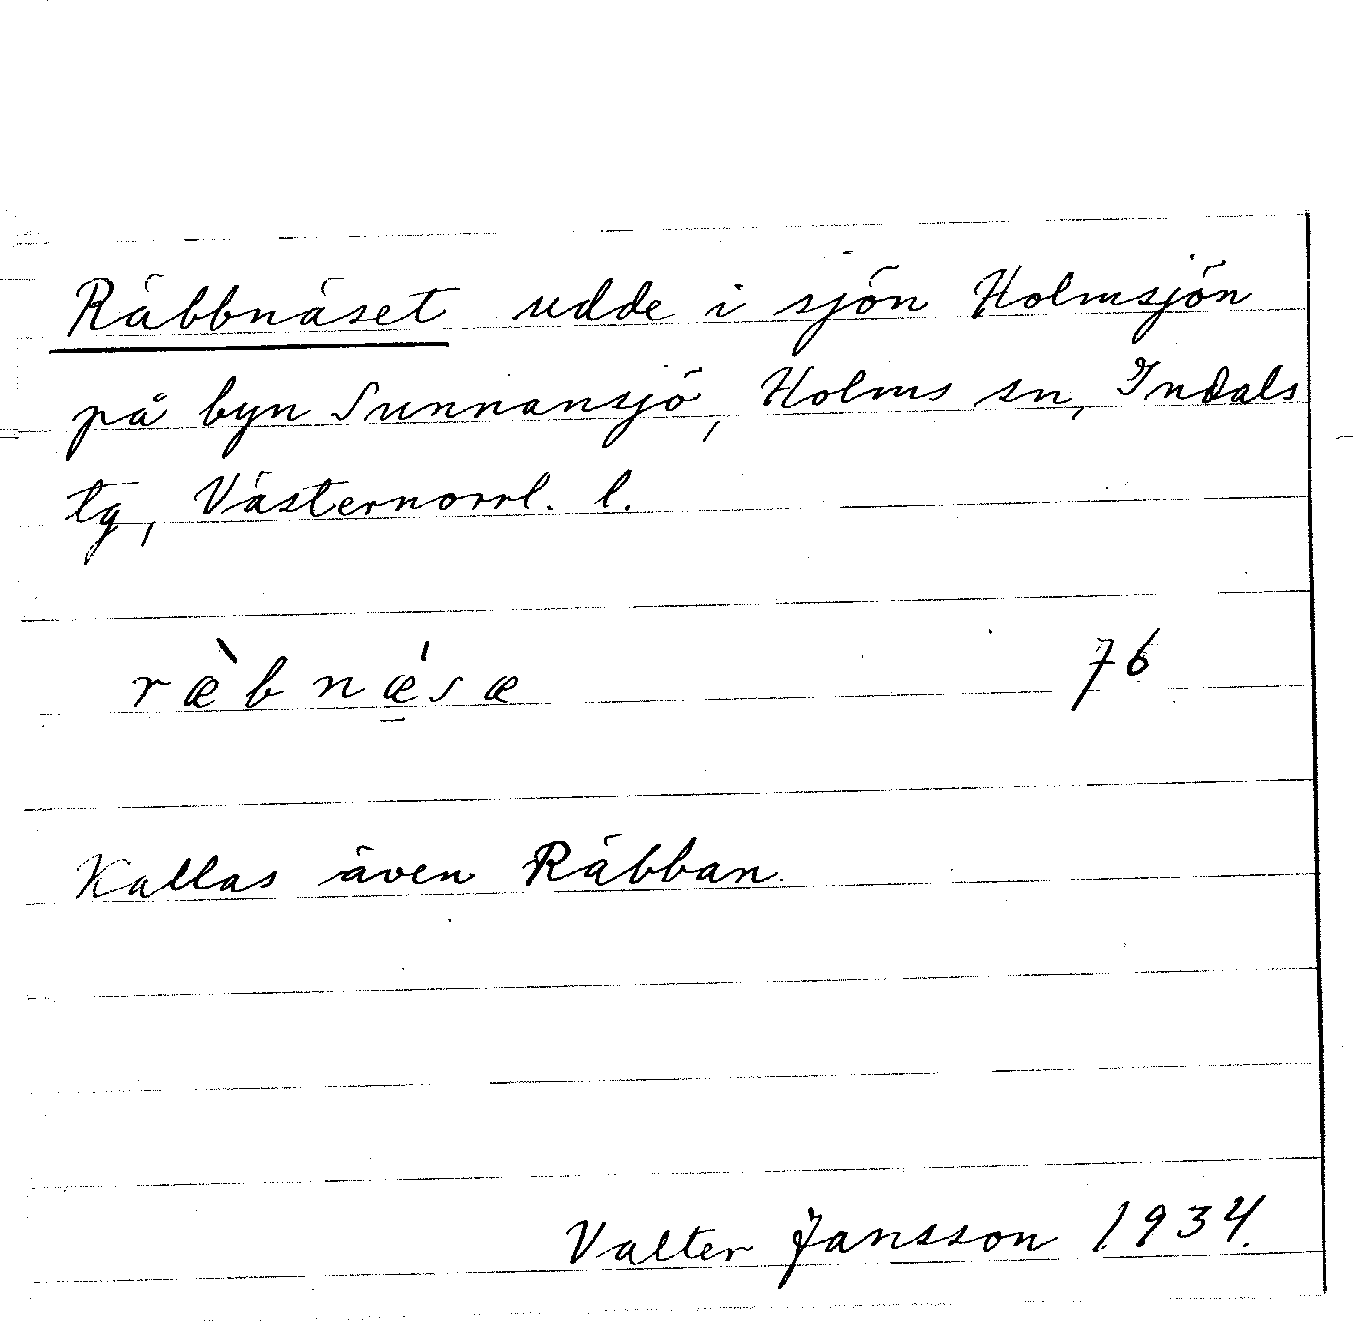 Räbbnäset udde i sjön Holmsjön
på byn Sunnansjö, Holms sn, Indals
tg, Västernorrl. l.
ræ̀b nǽ̱sæ 76
Kallas även Räbban.
Valter Jansson 1934.